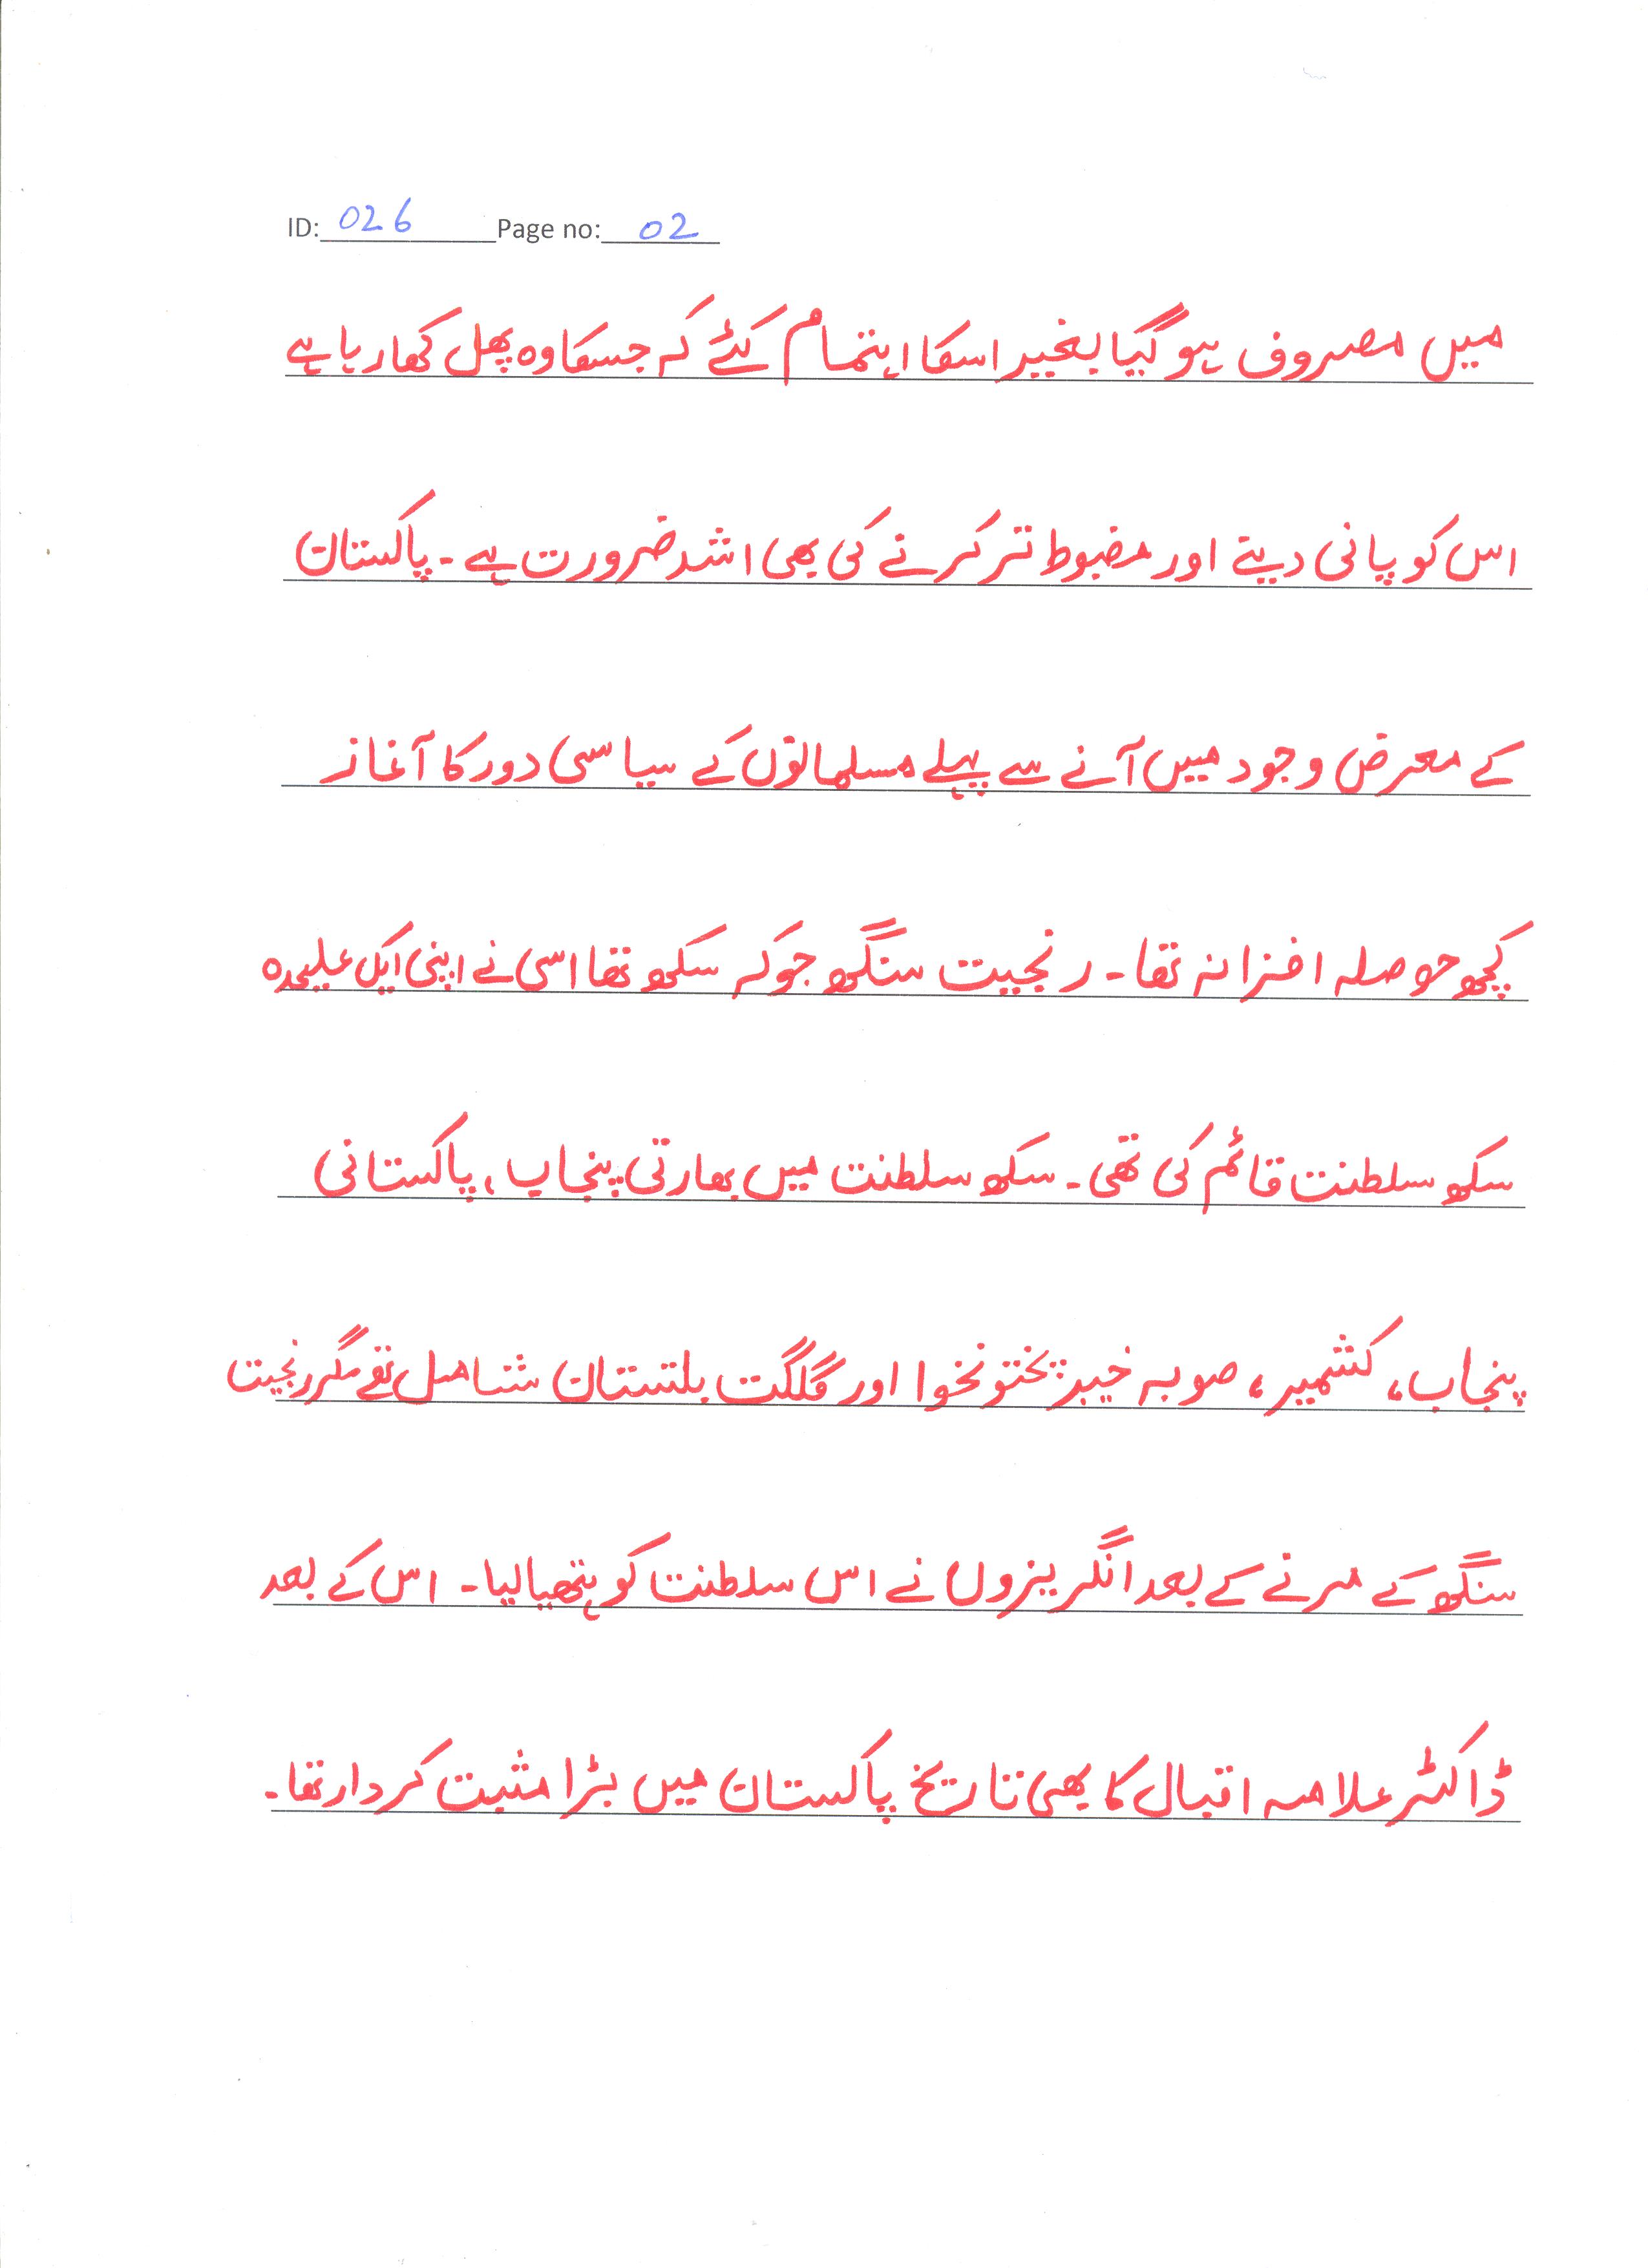 ID: 026 Page no: 02
میں مصروف ہو گیا بغیر اسکا اہتمام کئے کہ جسکا وہ پھل کھا رہا ہے
اس کو پانی دینے اور مضبوط تر کرنے کی بھی اشد ضرورت ہے۔ پاکستان
کے معرض وجود میں آنے سے پہلے مسلمانوں کے سیاسی دور کا آغاز
کچھ حوصلہ افزا نہ تھا۔ رنجیت سنگھ جو کہ سکھ تھا اسی نے اپنی ایک علیحدہ
سکھ سلطنت قائم کی تھی۔ سکھ سلطنت میں بھارتی پنجاب، پاکستانی
پنجاب، کشمیر، صوبہ خیبر پختونخوا اور گلگت بلتستان شامل تھے مگر رنجیت
سنگھ کے مرنے کے بعد انگریزوں نے اس سلطنت کو ہتھیا لیا۔ اس کے بعد
ڈاکٹر علامہ اقبال کا بھی تاریخ پاکستان میں بڑا مثبت کردار تھا۔